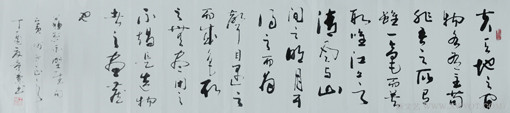 夫天地之間
物各有主苟
非吾之所有
雖一毫而莫
取惟江上之
清風與山
間之明月耳
得之而為
聲目遇之
而成色取
之無禁用之
不竭是造物
者之無盡藏
也